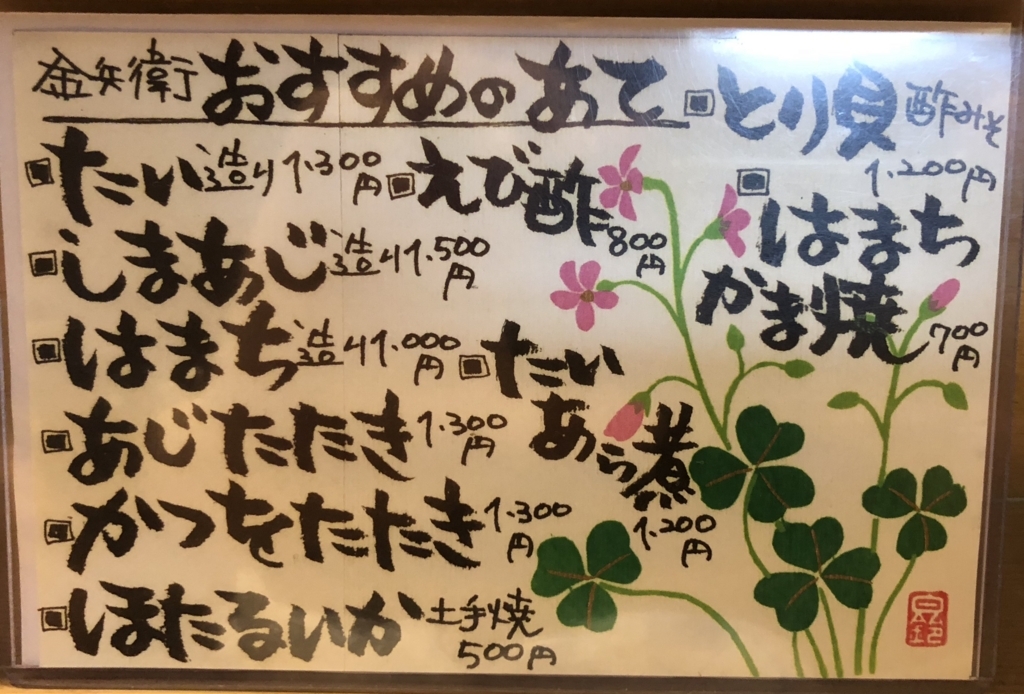 金兵衛 おすすめのあて
たい造り 1.300円
しまあじ造り 1.500円
はまち造り 1.000円
あじたたき 1.300円
かつをたたき 1.300円
ほたるいか 土手焼
500円
えび酢
800円
たい
あら煮
1.200円
とり貝 酢みそ
1.200円
はまち
かま焼
700円